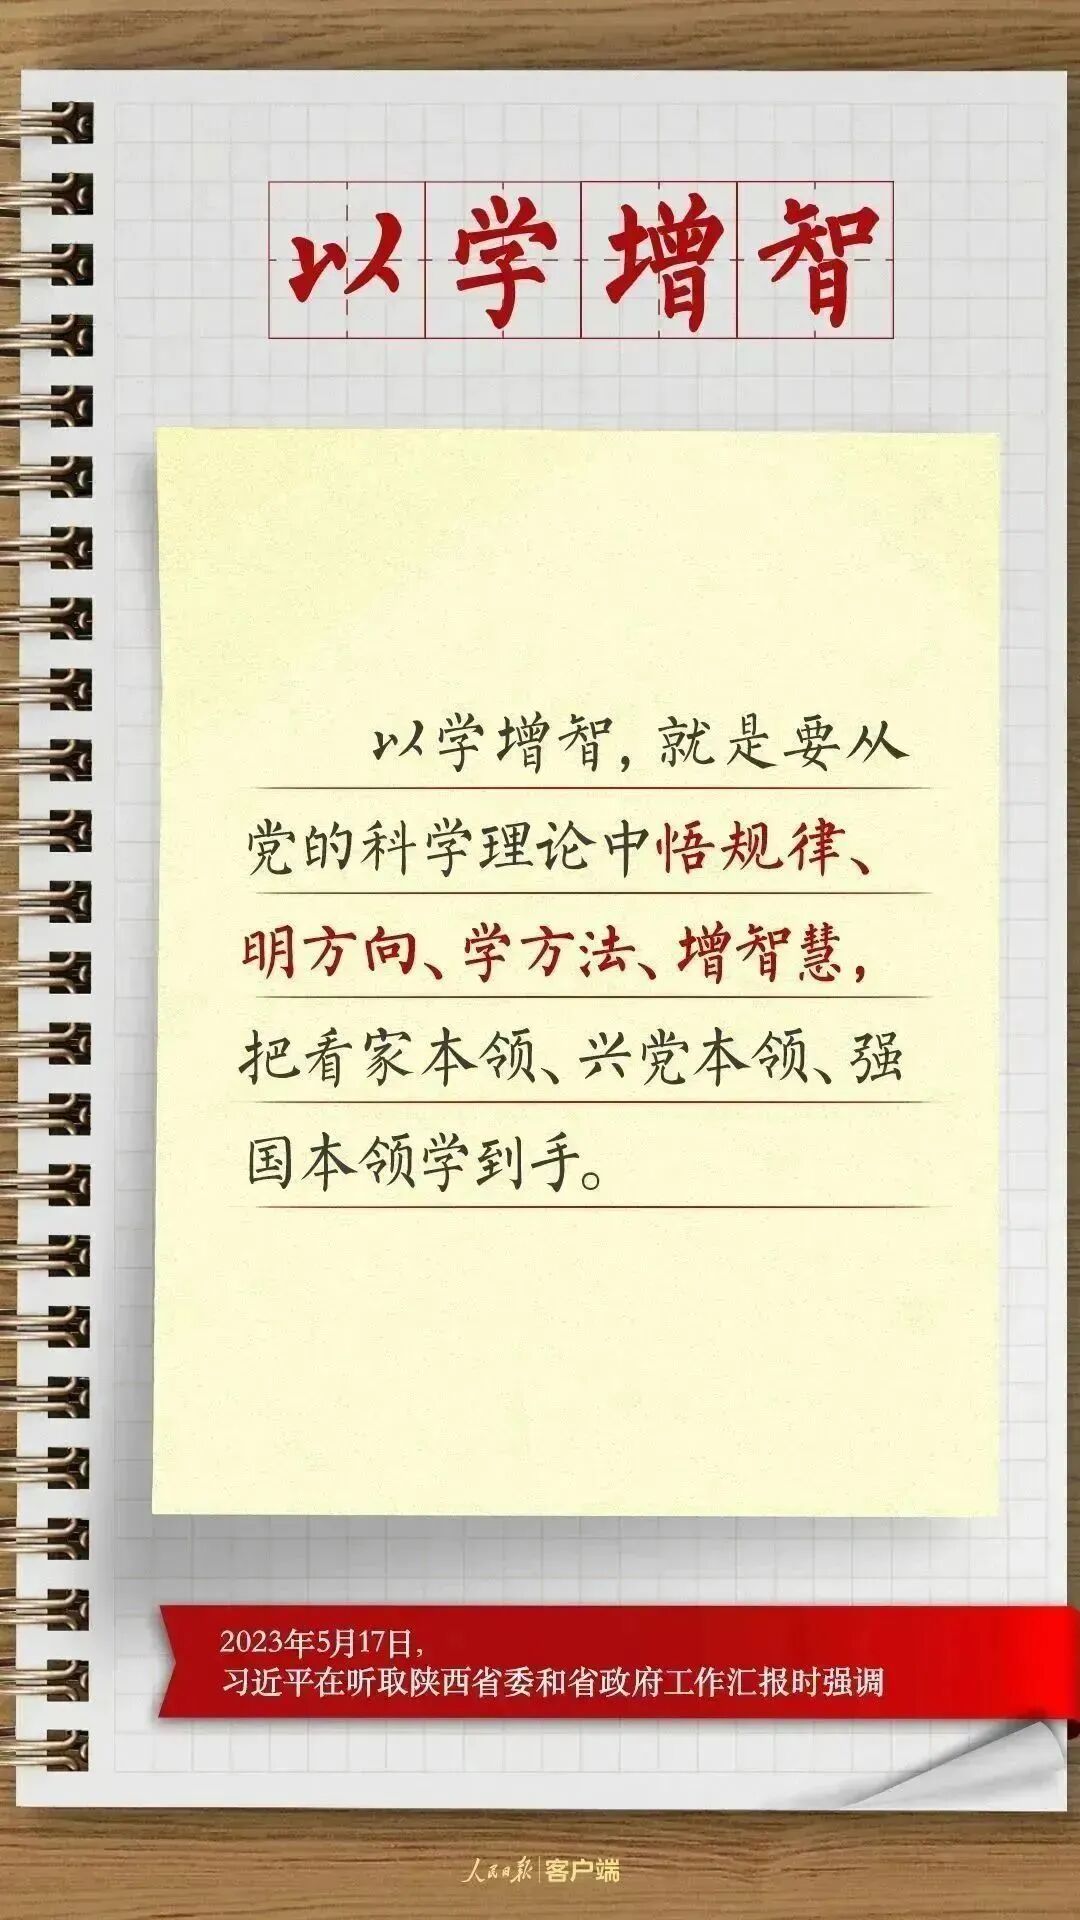 以学增智
以学增智，就是要从
党的科学理论中悟规律、
明方向、学方法、增智慧，
把看家本领、兴党本领、强
国本领学到手。
2023年5月17日，
习近平在听取陕西省委和省政府工作汇报时强调
人民日报|客户端